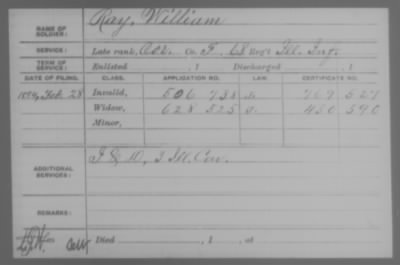 NAME OF SOLDIER: Ray, William
SERVICE: Late rank, Co. F, 68 Reg't Ill. Inf.
TERM OF SERVICE: Enlisted , 1 Discharged , 1
DATE OF FILING. CLASS. APPLICATION NO. LAW. CERTIFICATE NO.
Feb 28 Invalid, 506 738 769 527
Widow, 628 525 450 590
Minor,
ADDITIONAL SERVICES: 3 Ill. Cav.
REMARKS:
Died , 1 , at